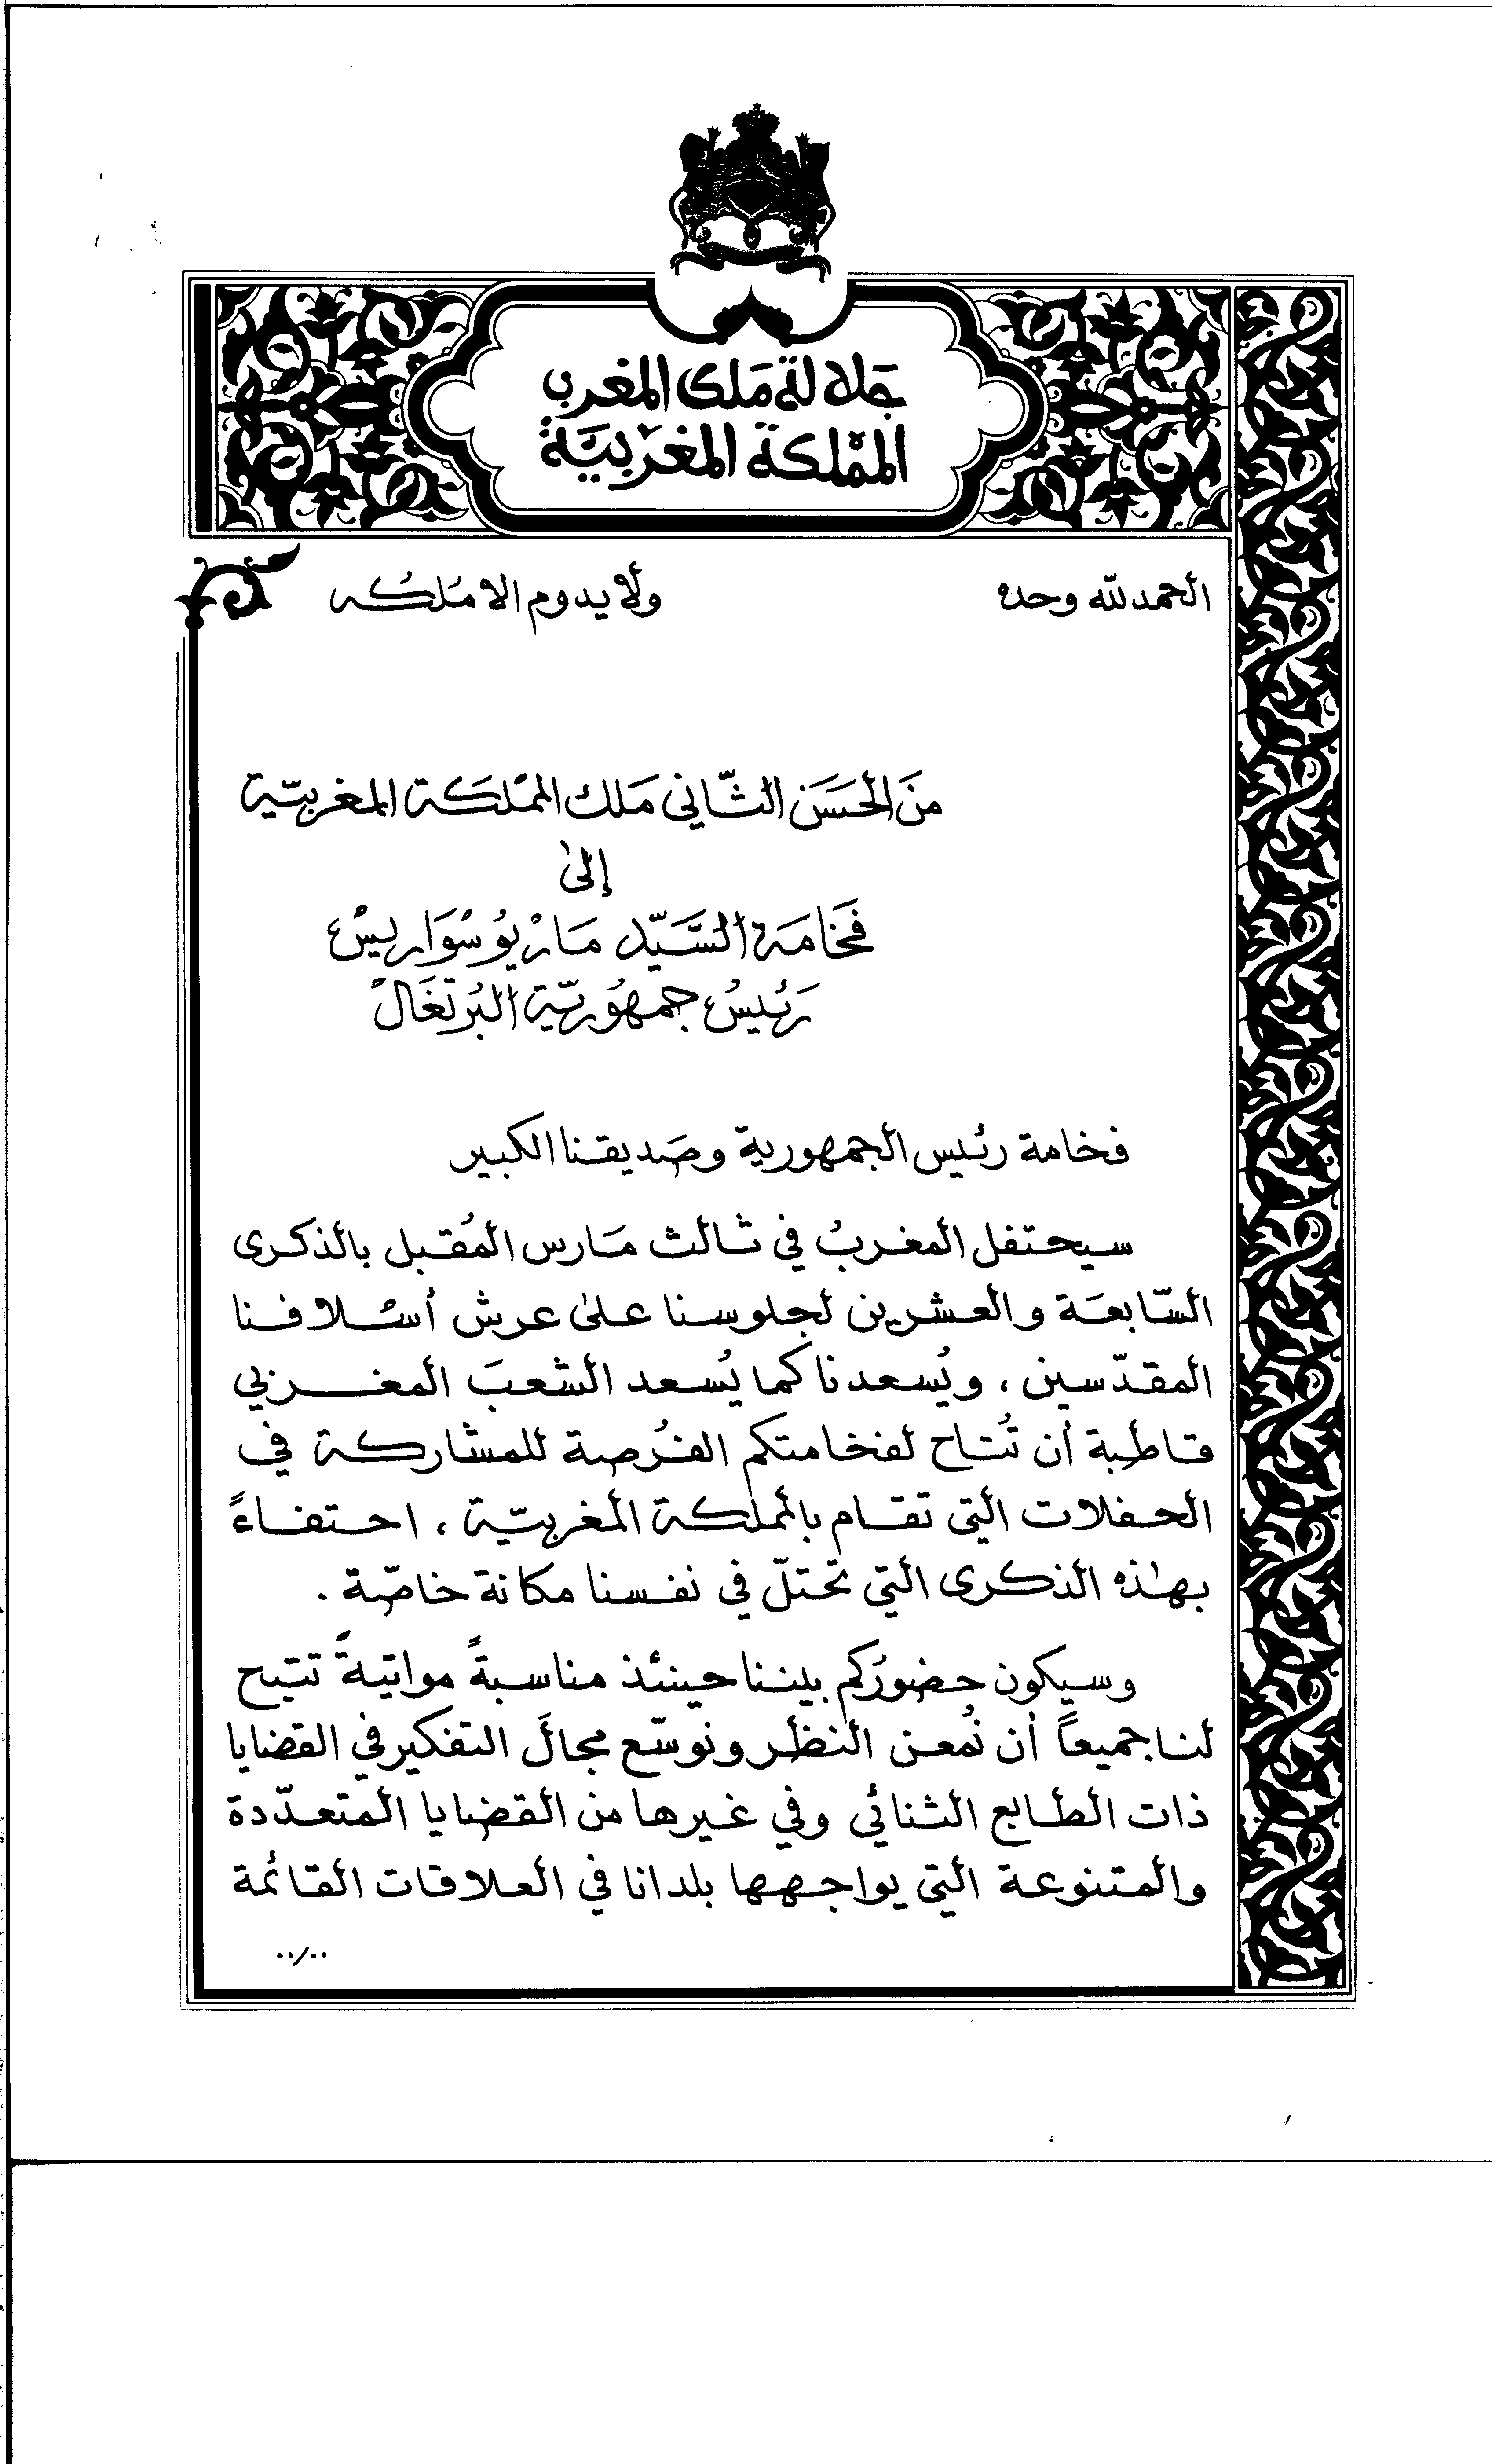 جلالة ملك المغرب
المملكة المغربيّة
الحمد لله وحده
ولا يدوم الا ملكه
منَ الحسَن الثّاني مَلك الممْلَكَة المغربيّة
إلىٰ
فَخَامَة السَّيّد مَارْيُو سْوَاريسْ
رَئيسُ جمهُوريّة البُرتغَالْ
فخامة رئيس الجمهورية وصَديقنا الكبير
سيحتفل المغربُ في ثالث مَارس المُقبل بالذكرى
السّابعَة والعشرين لجلوسنا علىٰ عرش أسْلافنا
المقدّسين ، ويُسعدنا كما يُسعد الشعبَ المغربي
قاطبة أن تُتاح لفخامتكم الفُرصة للمشاركة في
الحفلات التي تقام بالمملكة المغربيّة ، احتفاءً
بهٰذه الذكرى التي تحتلّ في نفسنا مكانة خاصّة .
وسيكون حضورُكم بيننا حينئذ مناسبةً مواتيةً تتيح
لنا جميعاً أن نُمعن النظر ونوسّع مجالَ التفكير في القضايا
ذات الطابع الثنائي وفي غيرها من القضايا المتعدّدة
والمتنوعة التي يواجهها بلدانا في العلاقات القائمة
../..